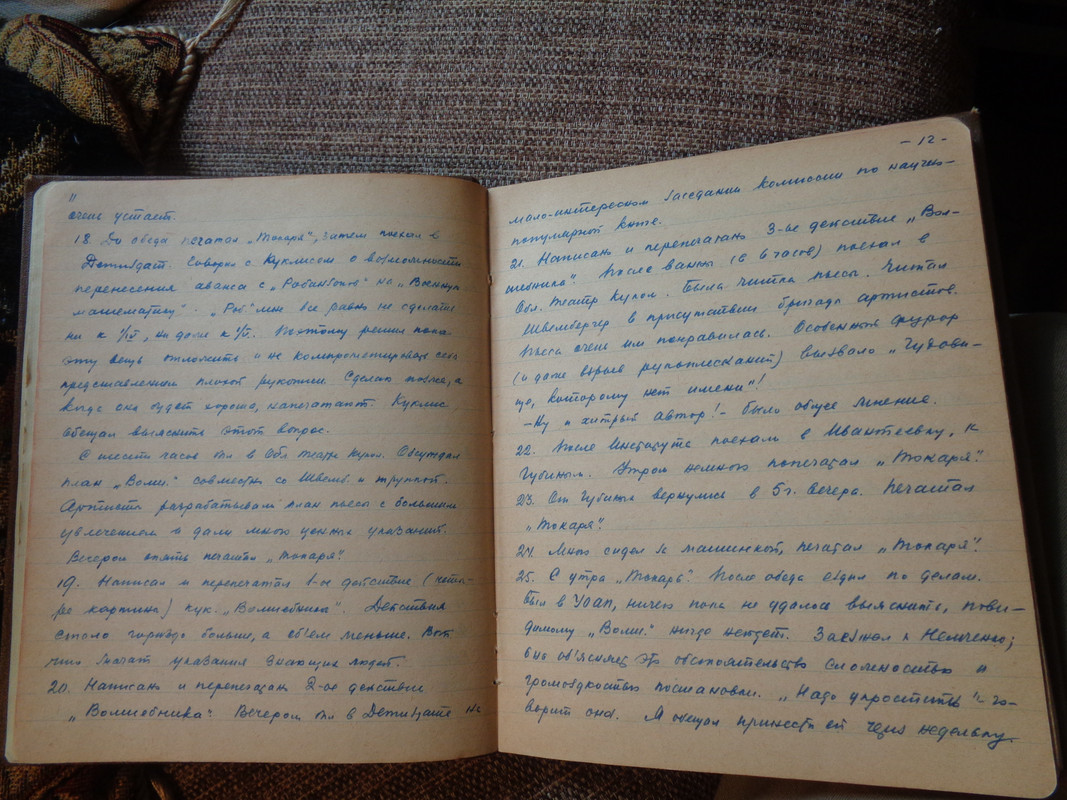 11
очень устает.
18. До обеда печатал „Токаря", затем поехал в
Детиздат. Говорил с Куклисом о возможности
перенесения аванса с „Робинзонов" на „Военную
математику". „Роб." мне все равно не сделать
ни к 1/IV, ни даже к 1/V. Поэтому решил пока
эту вещь отложить и не компрометировать себя
представлением плохой рукописи. Сделаю позже, а
когда она будет хороша, напечатают. Куклис
обещал выяснить этот вопрос.
С шести часов был в Обл театре кукол. Обсуждал
план „Волш." совместно со Швемб. и труппой.
Артисты разрабатывали план пьесы с большим
увлечением и дали много ценных указаний.
Вечером опять печатал „Токаря".
19. Написал и перепечатал 1-ое действие (четы-
ре картины) кук. „Волшебника". Действия
стало гораздо больше, а объем меньше. Вот
что значат указания знающих людей.
20. Написано и перепечатано 2-ое действие
„Волшебника". Вечером был в Детиздате на
- 12 -
мало-интересном заседании комиссии по научно-
популярной книге.
21. Написано и перепечатано 3-ье действие „Вол-
шебника". После ванны (в 6 часов) поехал в
Обл. Театр Кукол. Была читка пьесы. Читал
Швембергер в присутствии бригады артистов.
Пьеса очень им понравилась. Особенный фурор
(и даже взрыв рукоплесканий) вызвало „Чудови-
ще, которому нет имени"!
- Ну и хитрый автор! - было общее мнение.
22. После Института поехали в Ивантеевку, к
Губиным. Утром немного попечатал „Токаря".
23. От Губиных вернулись в 5 ч. вечера. Печатал
„Токаря".
24. Много сидел за машинкой, печатал „Токаря".
25. С утра „Токарь". После обеда ездил по делам.
Был в Уоап, ничего пока не удалось выяснить, пови-
димому „Волш." нигде не идет. Заезжал к Немченко;
она об'ясняет это обстоятельство сложностью и
громоздкостью постановки. „Надо упростить" го-
ворит она. Я обещал принести ей через недельку.